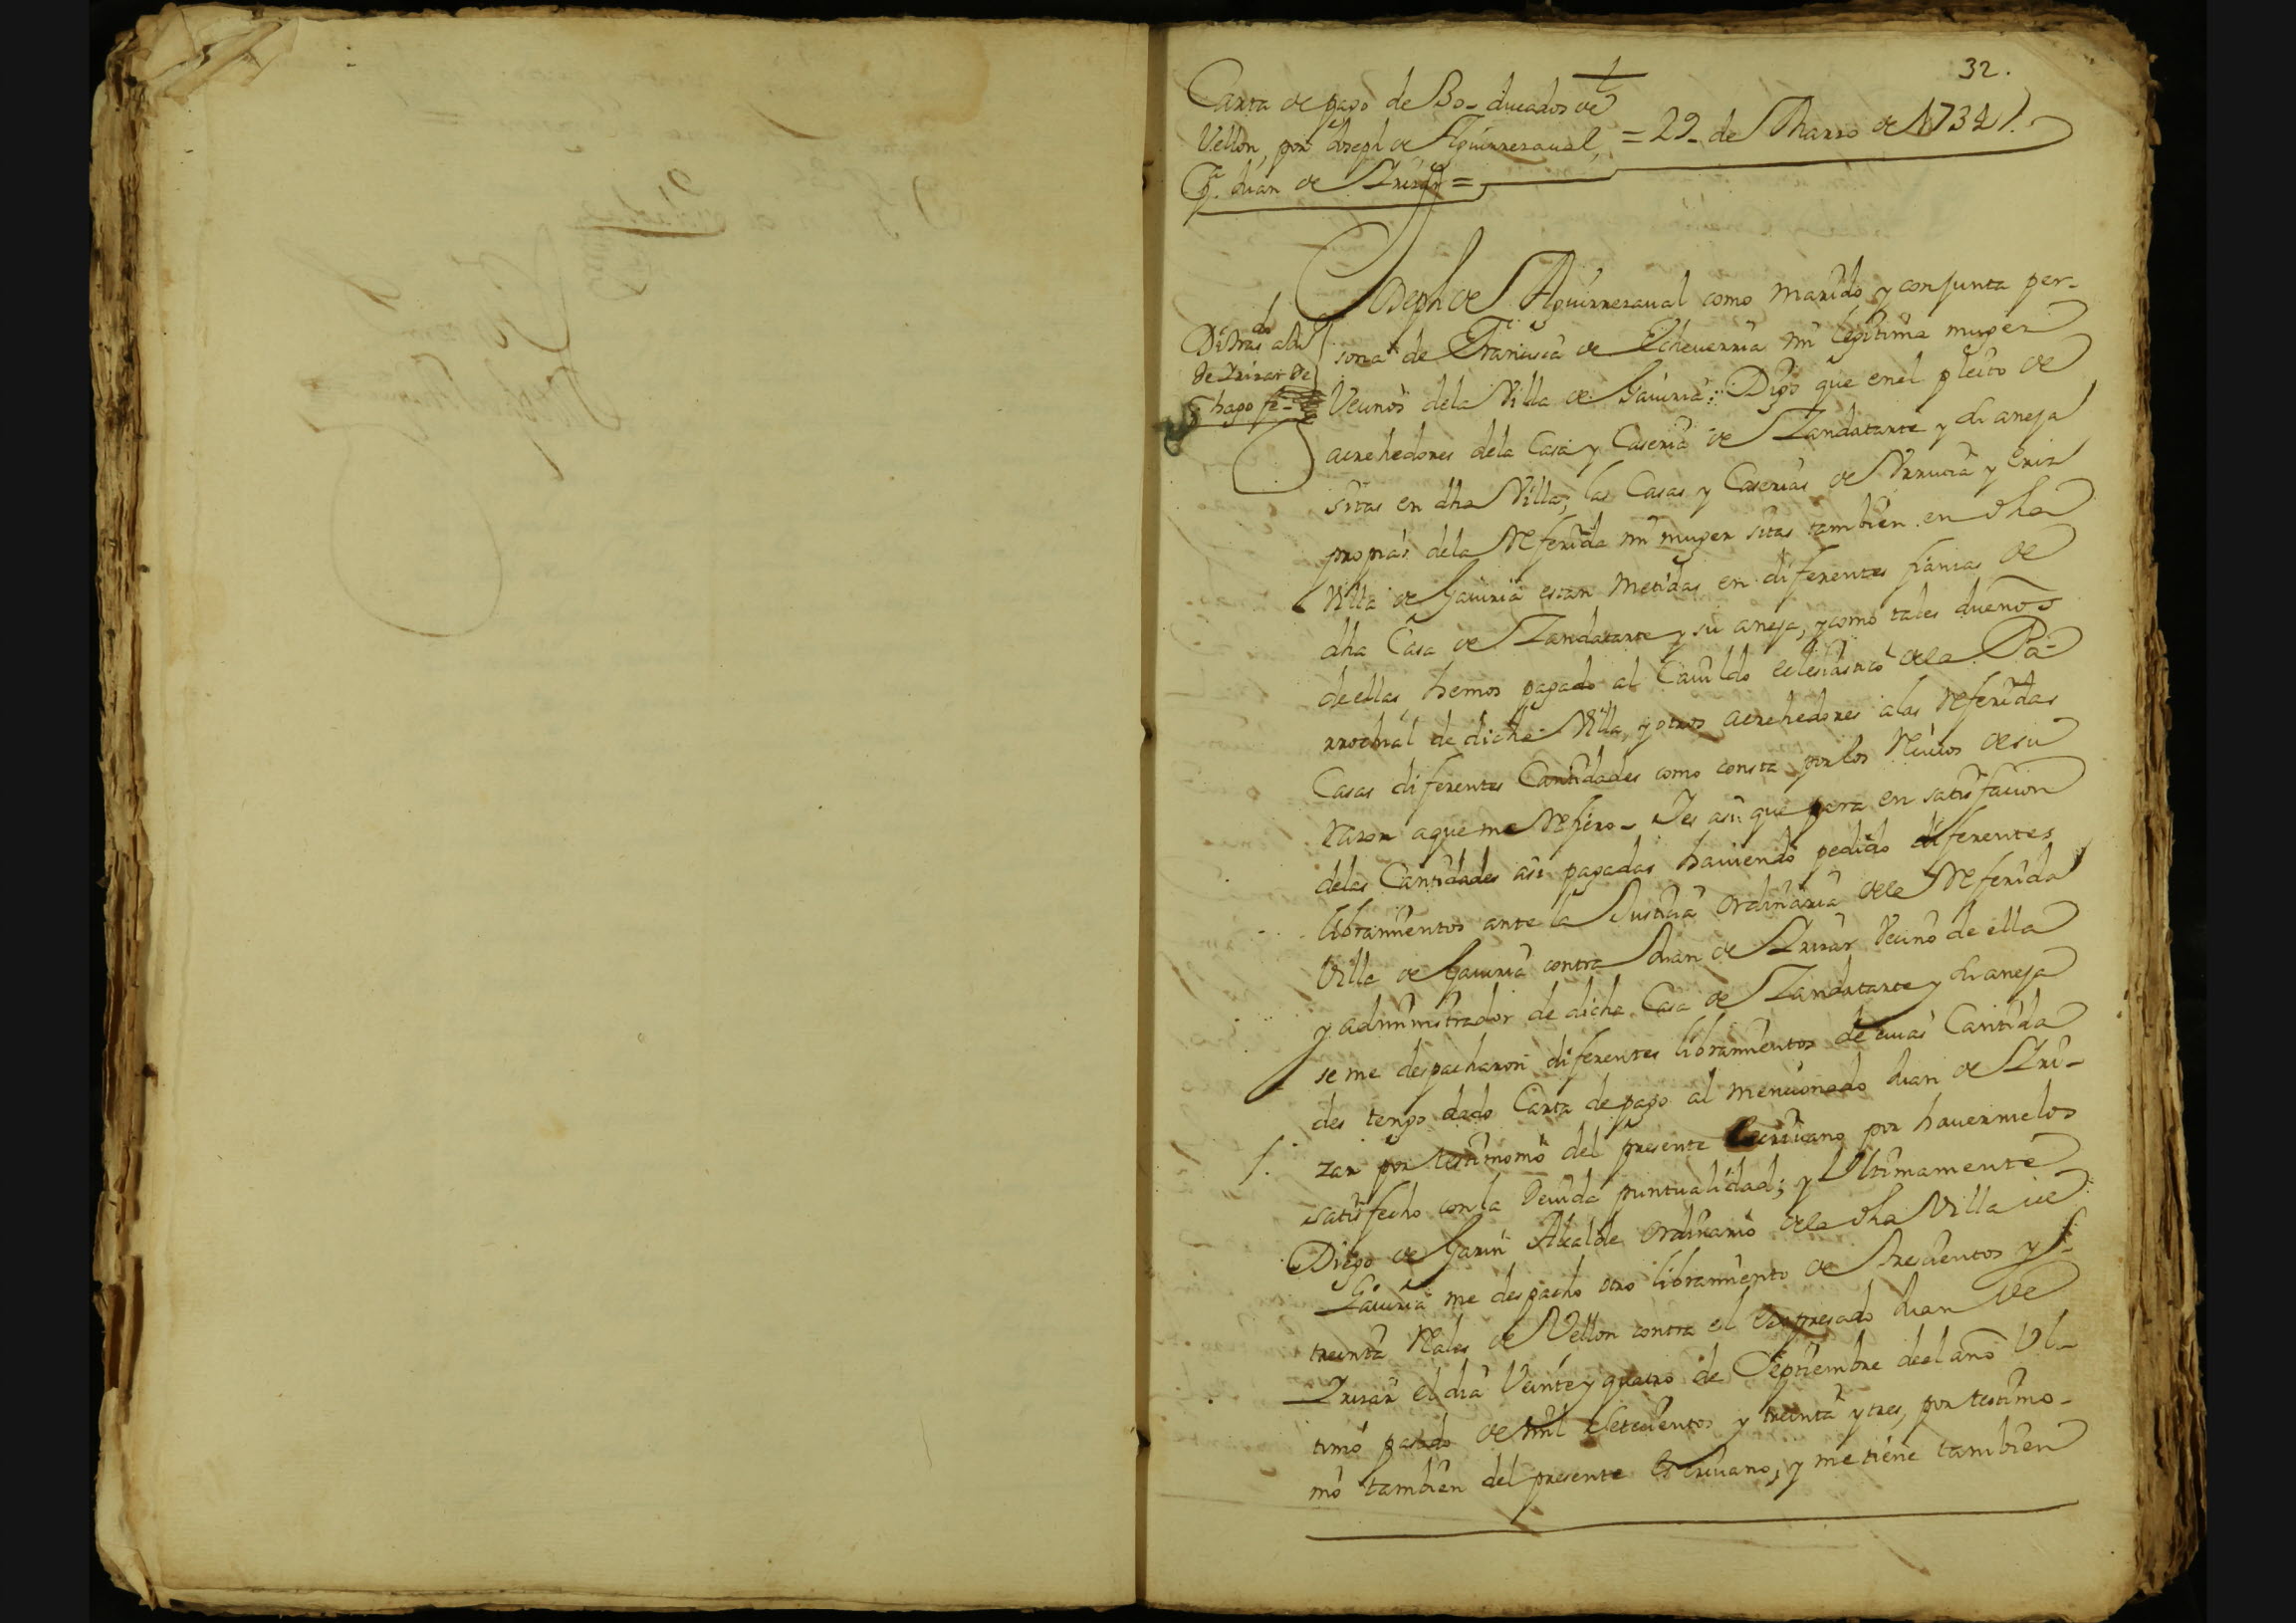 32.
Carta de pago de 30- ducados de
Vellon, por Joseph de Aguirrezaual, = 29- de Marzo de 1734
Juan de Irizar =
Joseph de Aguirrezaual como marido y conjunta per-
sona de Francisca de Echeuerria mi lexitima muger
Di tras
de Irizar de
hago fe
Vecinos dela Villa de Gauiria: Digo que enel pleito de
acrehedores dela Casa y Caseria de Zandatarte y su aneja
sitas en dha Villa, las Casas y Caserias de Vrrutia y
propias dela Referida mi muger sitas tambien en dha
Villa de Gauiria estan Metidas en diferentes fianzas de
dha Casa de Zandatarte y su aneja, y como tales dueños
de ellas, hemos pagado al Cauildo eclesiastico dela Pa-
rrochial de dicha Villa, y otros acrehedores alas Referidas
Casas diferentes Cantidades como consta por los Reciuos desu
Razon aque me Refiero- Yes asi que para en satisfacion
delas Cantidades asi pagadas hauiendo pedido diferentes
libramientos ante la Justicia ordinaria dela Referida
Villa de Gauiria contra Juan de Irizar Vecino de ella
y administrador de dicha Casa de Zandatarte y su aneja
se me despacharon diferentes libramientos de cuias Cantida
des tengo dado Carta de pago al mencionado Juan de Iri-
zar por testimonio del presente Escriuano por hauermelos
satisfecho con la Deuida puntualidad; y Ultimamente
Diego de Garin Alcalde Ordinario dela dha Villa de
Gauiria me despacho otro libramiento de Trescientos y
treinta Reales de Vellon contra el expresado Juan de
Irizar el dia Veinte y quatro de Septiembre deel año Ul-
timo pasado de mil Setecientos y treinta y tres, por testimo-
nio tambien del presente Escriuano, y me tiene tambien